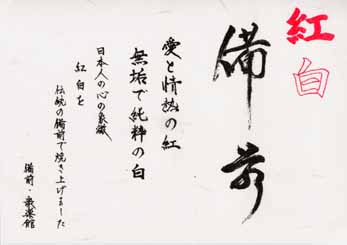 紅白
備前
愛と情熱の紅
無垢で純粋の白
日本人の心の象徴
紅白を
伝統の備前で焼き上げました
備前・衆楽館